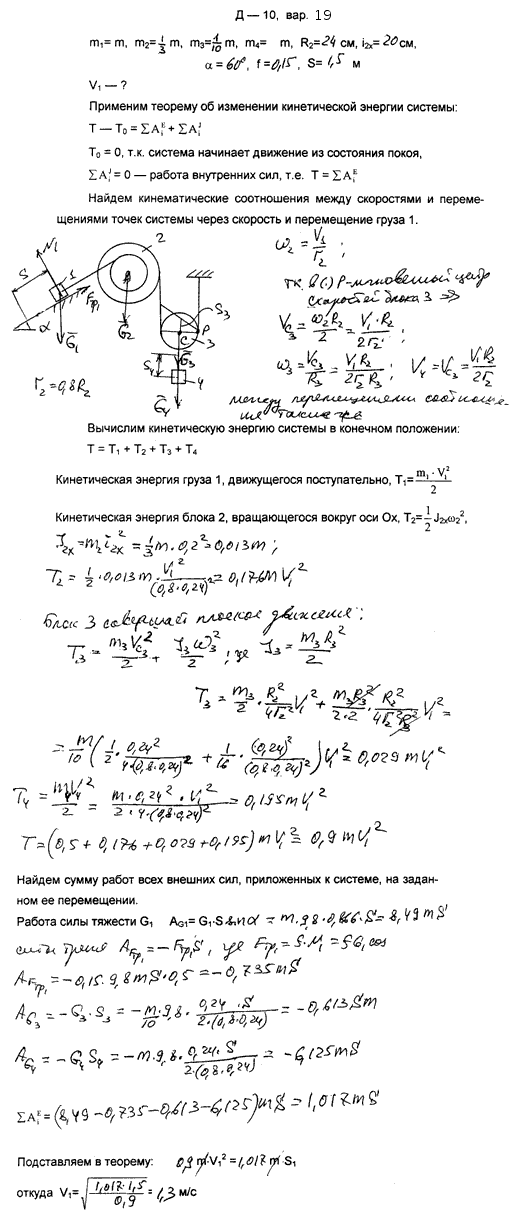 Д — 10, вар. 19
m₁= m, m₂=1/3 m, m₃=1/10 m, m₄= m, R₂=24 см, i₂ₓ=20 см,
α = 60°, f =0,15, S= 1,5 м
V₁ — ?
Применим теорему об изменении кинетической энергии системы:
T — T₀ = ∑Aᵢᴱ + ∑Aᵢᴶ
T₀ = 0, т.к. система начинает движение из состояния покоя,
∑Aᵢᴶ = 0 — работа внутренних сил, т.е. T = ∑Aᵢᴱ
Найдем кинематические соотношения между скоростями и переме-
щениями точек системы через скорость и перемещение груза 1.
N₁ S 1 Fтр₁ α G₁ 2 G₂ S₃ P C 3 G₃ S₄ 4 G₄
r₂=0,8R₂
ω₂ = V₁/r₂ ;
т.к. в (·) P-мгновенный центр
скоростей блока 3 ⇒
V_C₃ = ω₂R₂/2 = V₁·R₂/2r₂ ;
ω₃ = V_C₃/R₃ = V₁R₂/2r₂R₃ ; V₄ = V_C₃ = V₁R₂/2r₂
между перемещениями соотноше-
ние такие же
Вычислим кинетическую энергию системы в конечном положении:
T = T₁ + T₂ + T₃ + T₄
Кинетическая энергия груза 1, движущегося поступательно, T₁= m₁·V₁²/2
Кинетическая энергия блока 2, вращающегося вокруг оси Ох, T₂= 1/2 J₂ₓω₂²,
J₂ₓ = m₂i₂ₓ² = 1/3 m·0,2² = 0,013m ;
T₂ = 1/2 · 0,013m · V₁²/(0,8·0,24)² = 0,176mV₁²
Блок 3 совершает плоское движение;
T₃ = m₃V_C₃²/2 + J₃ω₃²/2 ; где J₃ = m₃R₃²/2
T₃ = m₃/2 · R₂²/4r₂² V₁² + m₃R₃²/2·2 · R₂²/4r₂²R₃² V₁² =
= m/10 (1/2 · 0,24²/4(0,8·0,24)² + 1/16 · (0,24)²/(0,8·0,24)²) V₁² = 0,029 mV₁²
T₄ = m₄V₄²/2 = m·0,24²·V₁²/2·4·(0,8·0,24)² = 0,195mV₁²
T = (0,5 + 0,176 + 0,029 + 0,195) mV₁² = 0,9 mV₁²
Найдем сумму работ всех внешних сил, приложенных к системе, на задан-
ном ее перемещении.
Работа силы тяжести G₁ A_G1= G₁·S sinα = m·9,8·0,866·S = 8,49mS
силы трения A_Fтр₁ = −Fтр₁S, где Fтр₁ = f·N₁ = fG₁cos
A_Fтр₁ = −0,15·9,8mS·0,5 = −0,735mS
A_G₃ = −G₃·S₃ = −m/10·9,8· 0,24·S/2·(0,8·0,24) = −0,613Sm
A_G₄ = −G₄S₄ = −m·9,8· 0,24·S/2·(0,8·0,24) = −6,125mS
∑Aᵢᴱ = (8,49 −0,735 −0,613 −6,125)mS = 1,017mS
Подставляем в теорему: 0,9 m·V₁² = 1,017 m S₁
откуда V₁= √(1,017·1,5/0,9) = 1,3 м/с